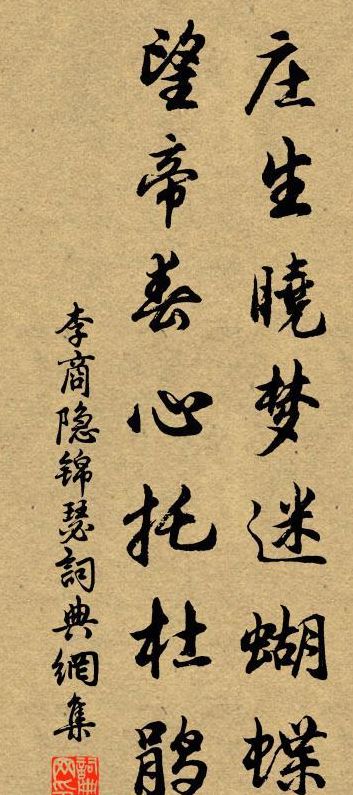 庄生曉梦迷蝴蝶
望帝春心托杜鹃
李商隐锦瑟詞典網集